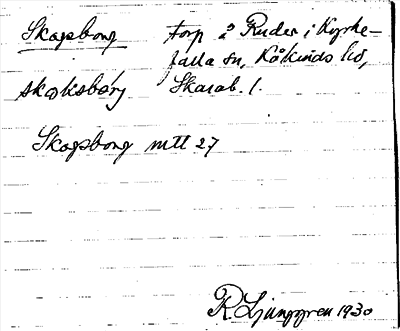 Skogsborg torp å Ruder i Kyrke-
falla sn, Kåkinds hd,
Skarab. l.
Skogsborg mtl 27
R. Ljunggren 1930